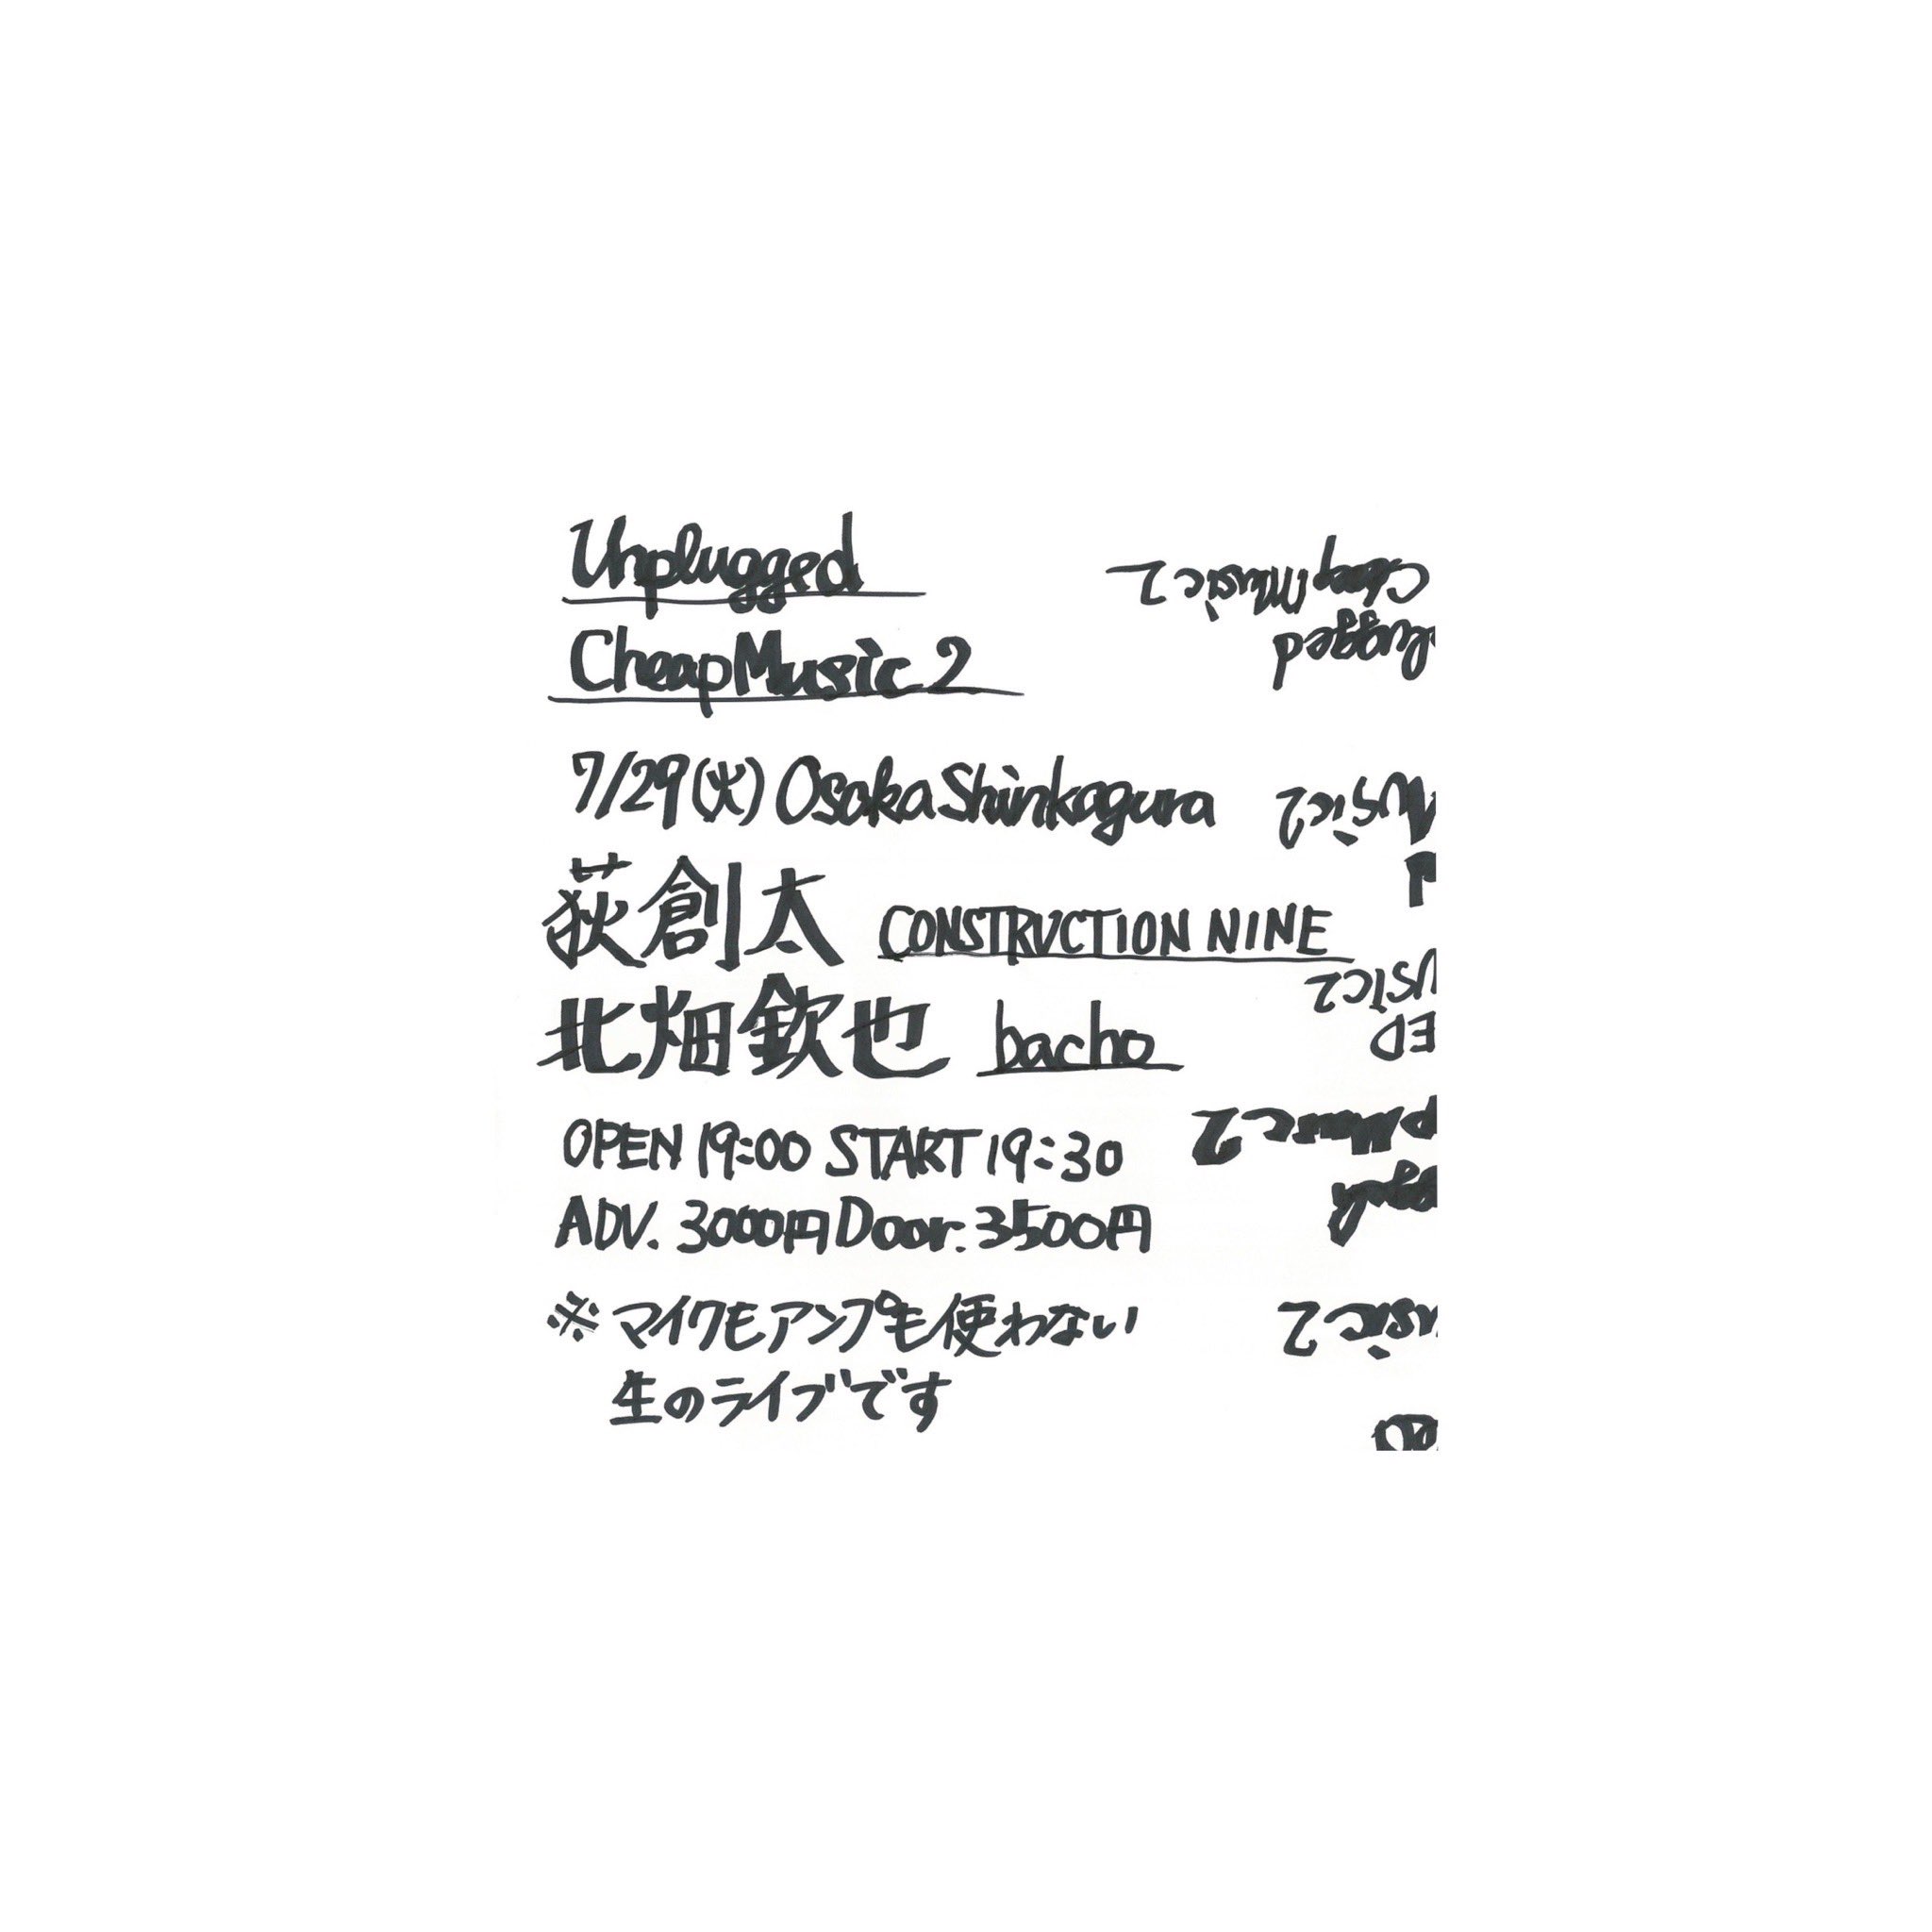 Unplugged
Cheap Music 2
7/29(火) Osaka Shinkagura
荻創太 CONSTRUCTION NINE
北畑欽也 bacho
OPEN 19:00 START 19:30
ADV. 3000円 Door. 3500円
※マイクもアンプも使わない
生のライブです
Cheap Music 2
usic 2
ED
usic 2